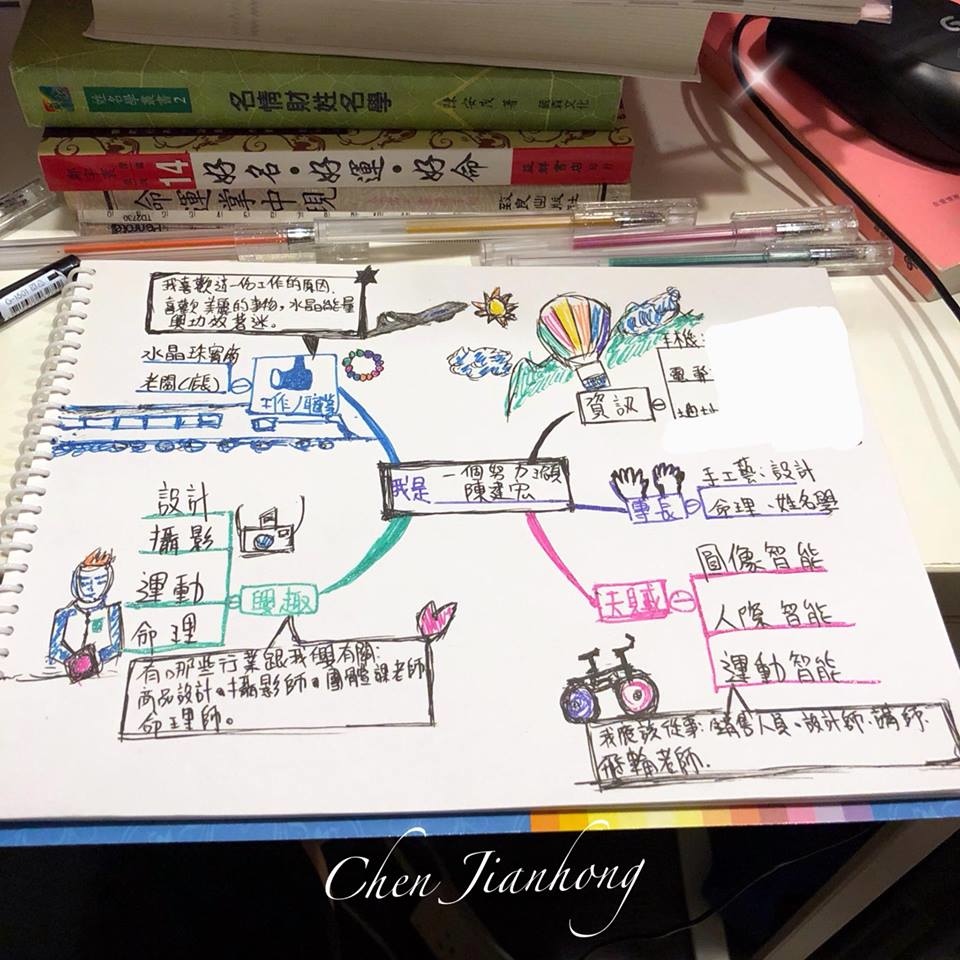 姓名學叢書2 名情財姓名學 陳安茂 著
14 好名·好運·好命 益群書店
命運掌中現
我喜歡這一份工作的原因.
喜歡美麗的事物,水晶能量
與功效著迷。
水晶珠寶商
老闆(店長)
工作/職業
手機:
電郵
地址
資訊
我是 一個努力
陳建宏
專長
手工藝:設計
命理、姓名學
設計
攝影
運動
命理
興趣
有哪些行業跟我興趣有關:
商品設計。攝影師。團體課老師
命理師。
天賦
圖像智能
人際智能
運動智能
我應該從事:銷售人員。設計師.講師.
飛輪老師.
Chen Jianhong